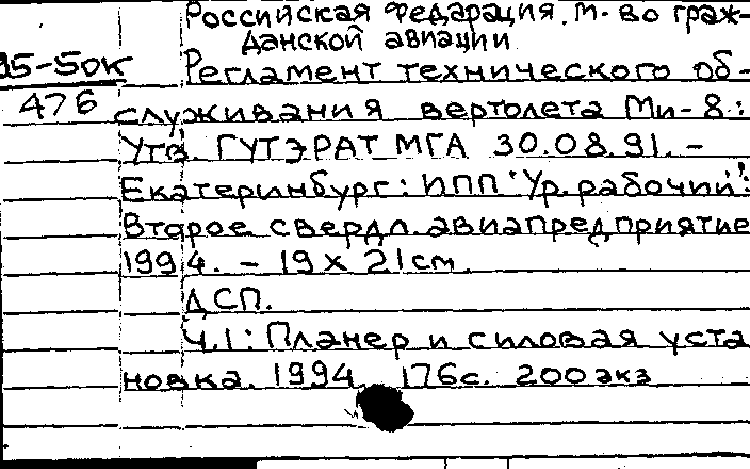 Российская Федарация. М-во граж-
данской авиации
95-5ок Регламент технического об-
476 служивания вертолета Ми-8:
Утв. ГУТЭРАТ МГА 30.08.91. -
Екатеринбург: ИПП "Ур. рабочий":
Второе свердл. авиапредприятие
1994. - 19 x 21 cm.
ДСП.
Ч.1: Планер и силовая уста
новка. 1994 176с. 200 экз